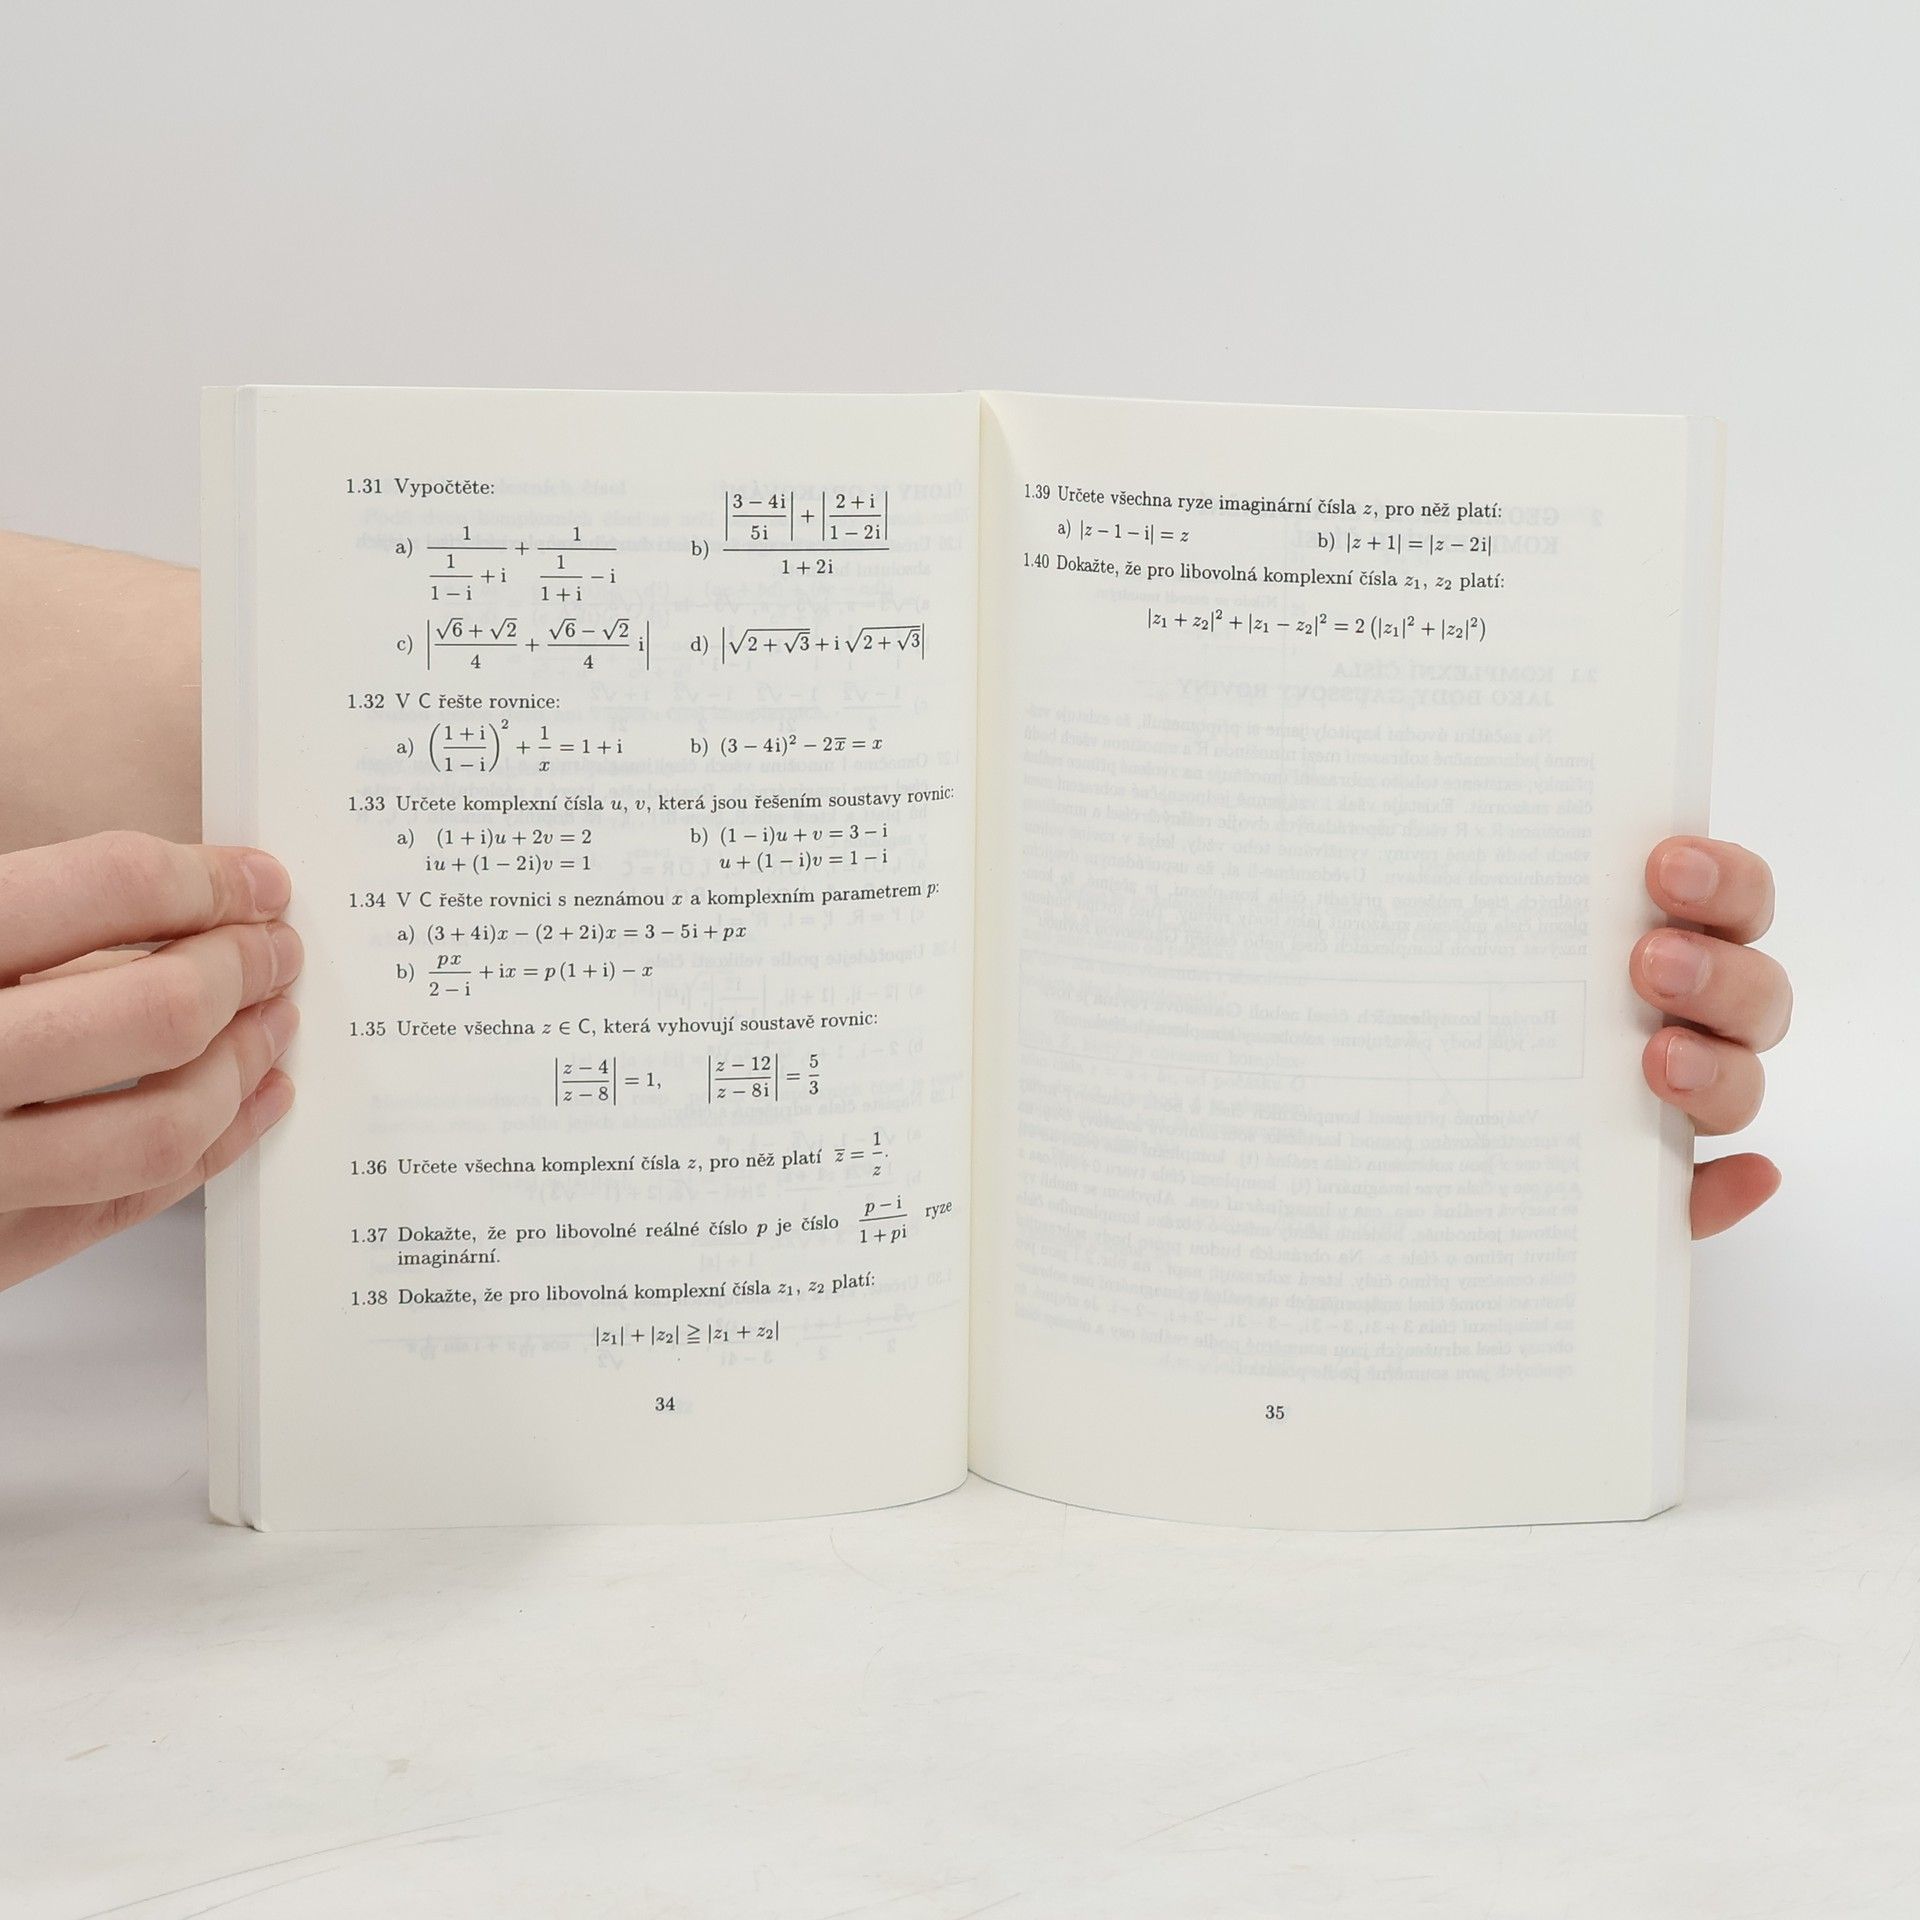 1.31 Vypočtěte:
a) \frac{1}{\frac{1}{1 − i} + i} + \frac{1}{\frac{1}{1 + i} − i} b) \frac{|\frac{3 − 4i}{5i}| + |\frac{2 + i}{1 − 2i}|}{1 + 2i}
c) |\frac{√6 + √2}{4} + \frac{√6 − √2}{4} i| d) |√(2 + √3) + i √(2 + √3)|
1.32 V C řešte rovnice:
a) (\frac{1 + i}{1 − i})² + \frac{1}{x} = 1 + i b) (3 − 4i)² − 2x̅ = x
1.33 Určete komplexní čísla u, v, která jsou řešením soustavy rovnic:
a) (1 + i)u + 2v = 2 b) (1 − i)u + v = 3 − i
iu + (1 − 2i)v = 1 u + (1 − i)v = 1 − i
1.34 V C řešte rovnici s neznámou x a komplexním parametrem p:
a) (3 + 4i)x − (2 + 2i)x = 3 − 5i + px
b) \frac{px}{2 − i} + ix = p(1 + i) − x
1.35 Určete všechna z ∈ C, která vyhovují soustavě rovnic:
|\frac{z − 4}{z − 8}| = 1, |\frac{z − 12}{z − 8i}| = \frac{5}{3}
1.36 Určete všechna komplexní čísla z, pro něž platí z̅ = \frac{1}{z}.
1.37 Dokažte, že pro libovolné reálné číslo p je číslo \frac{p − i}{1 + pi} ryze
imaginární.
1.38 Dokažte, že pro libovolná komplexní čísla z₁, z₂ platí:
|z₁| + |z₂| ≧ |z₁ + z₂|
34
1.39 Určete všechna ryze imaginární čísla z, pro něž platí:
a) |z − 1 − i| = z b) |z + 1| = |z − 2i|
1.40 Dokažte, že pro libovolná komplexní čísla z₁, z₂ platí:
|z₁ + z₂|² + |z₁ − z₂|² = 2 (|z₁|² + |z₂|²)
35